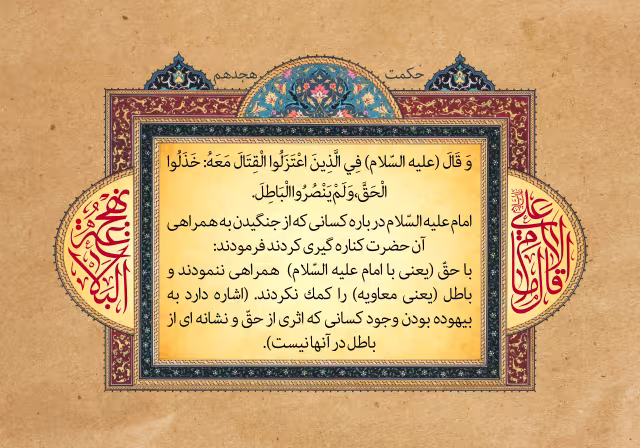 حکمت هجدهم
وَ قَالَ (علیه السّلام) فِي الَّذِينَ اعْتَزَلُوا الْقِتَالَ مَعَهُ: خَذَلُوا
الْحَقَّ، وَلَمْ يَنْصُرُوا الْبَاطِلَ.
امام علیه السّلام درباره کسانی که از جنگیدن به همراهی
آن حضرت کناره گیری کردند فرمودند:
با حقّ (یعنی با امام علیه السّلام) همراهی ننمودند و
باطل (یعنی معاویه) را کمك نکردند. (اشاره دارد به
بیهوده بودن وجود کسانی که اثری از حقّ و نشانه ای از
باطل در آنها نیست).
قال الامام علی
نهج البلاغة